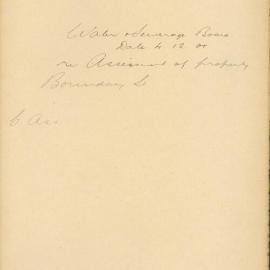 Water & Sewerage Board
Date 4. 12. 00
re Assessment of property
Boundary St
C Ass